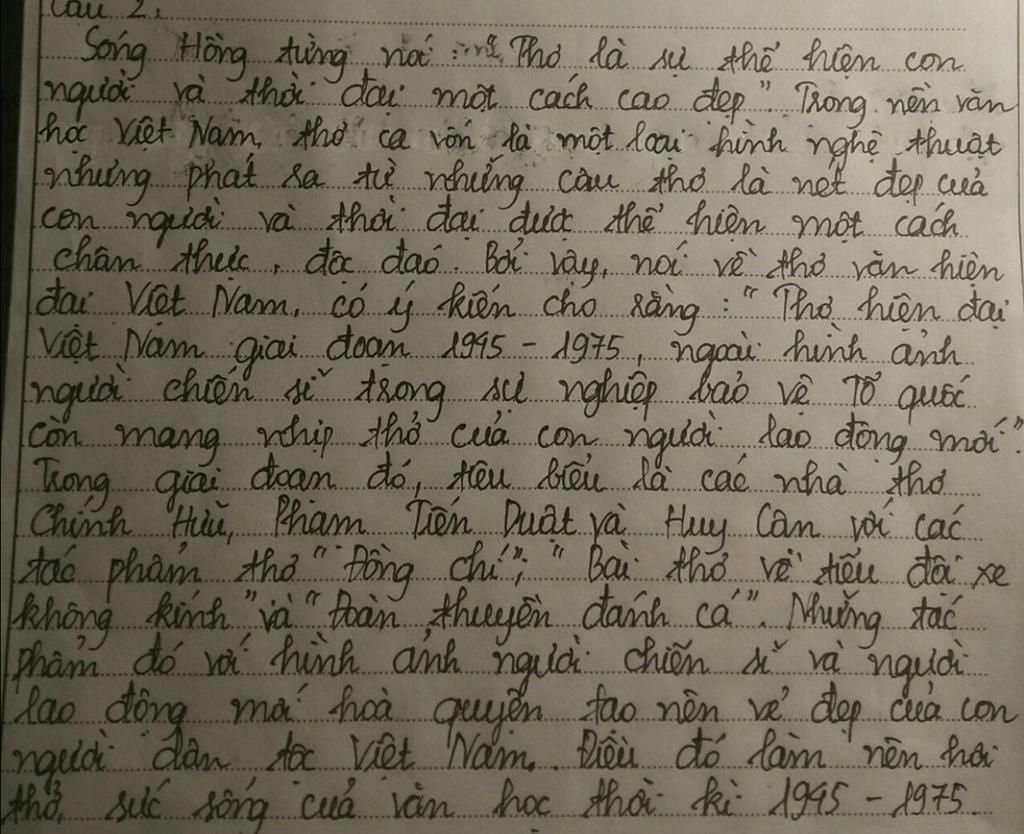 Câu 2:
Sóng Hồng từng nói: "Thơ là sự thể hiện con
người và thời đại một cách cao đẹp". Trong nền văn
học Việt Nam, thơ ca vốn là một loại hình nghệ thuật
nhưng phát ra từ những câu thơ là nét đẹp của
con người và thời đại được thể hiện một cách
chân thực, độc đáo. Bởi vậy, nói về thơ văn hiện
đại Việt Nam, có ý kiến cho rằng: "Thơ hiện đại
Việt Nam giai đoạn 1945 - 1975, ngoài hình ảnh
người chiến sĩ trong sự nghiệp bảo vệ Tổ quốc
còn mang nhịp thở của con người lao động mới".
Trong giai đoạn đó, tiêu biểu là các nhà thơ
Chính Hữu, Phạm Tiến Duật và Huy Cận với các
tác phẩm thơ "Đồng chí"; "Bài thơ về tiểu đội xe
không kính" và "Đoàn thuyền đánh cá". Những tác
phẩm đó với hình ảnh người chiến sĩ và người
lao động mới hoà quyện tạo nên vẻ đẹp của con
người dân tộc Việt Nam. Điều đó làm nên hơi
thở, sức sống của văn học thời kì 1945 - 1975